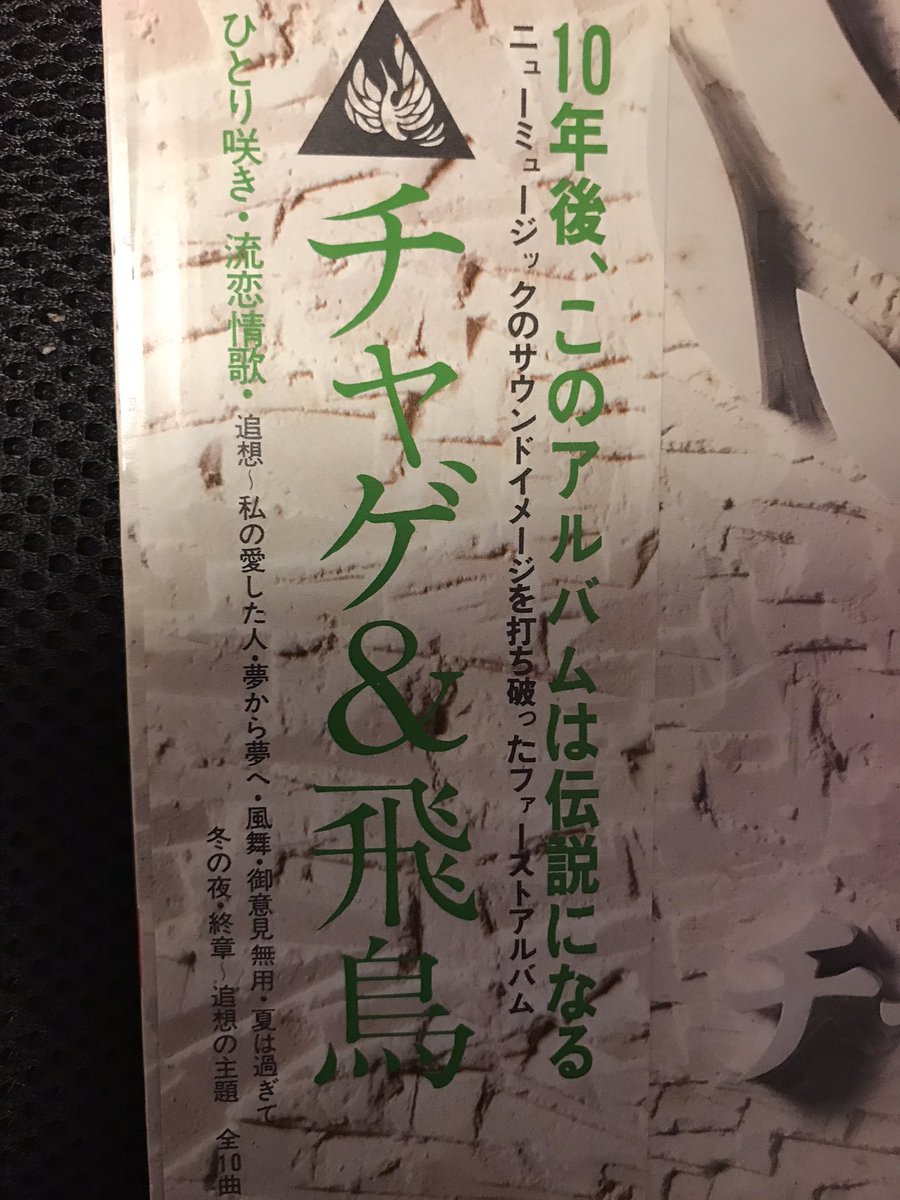 10年後、このアルバムは伝説になる
ニューミュージックのサウンドイメージを打ち破ったファーストアルバム
チャゲ&飛鳥
ひとり咲き・流恋情歌・追想〜私の愛した人・夢から夢へ・風舞・御意見無用・夏は過ぎて
冬の夜・終章〜追想の主題 全10曲
チ